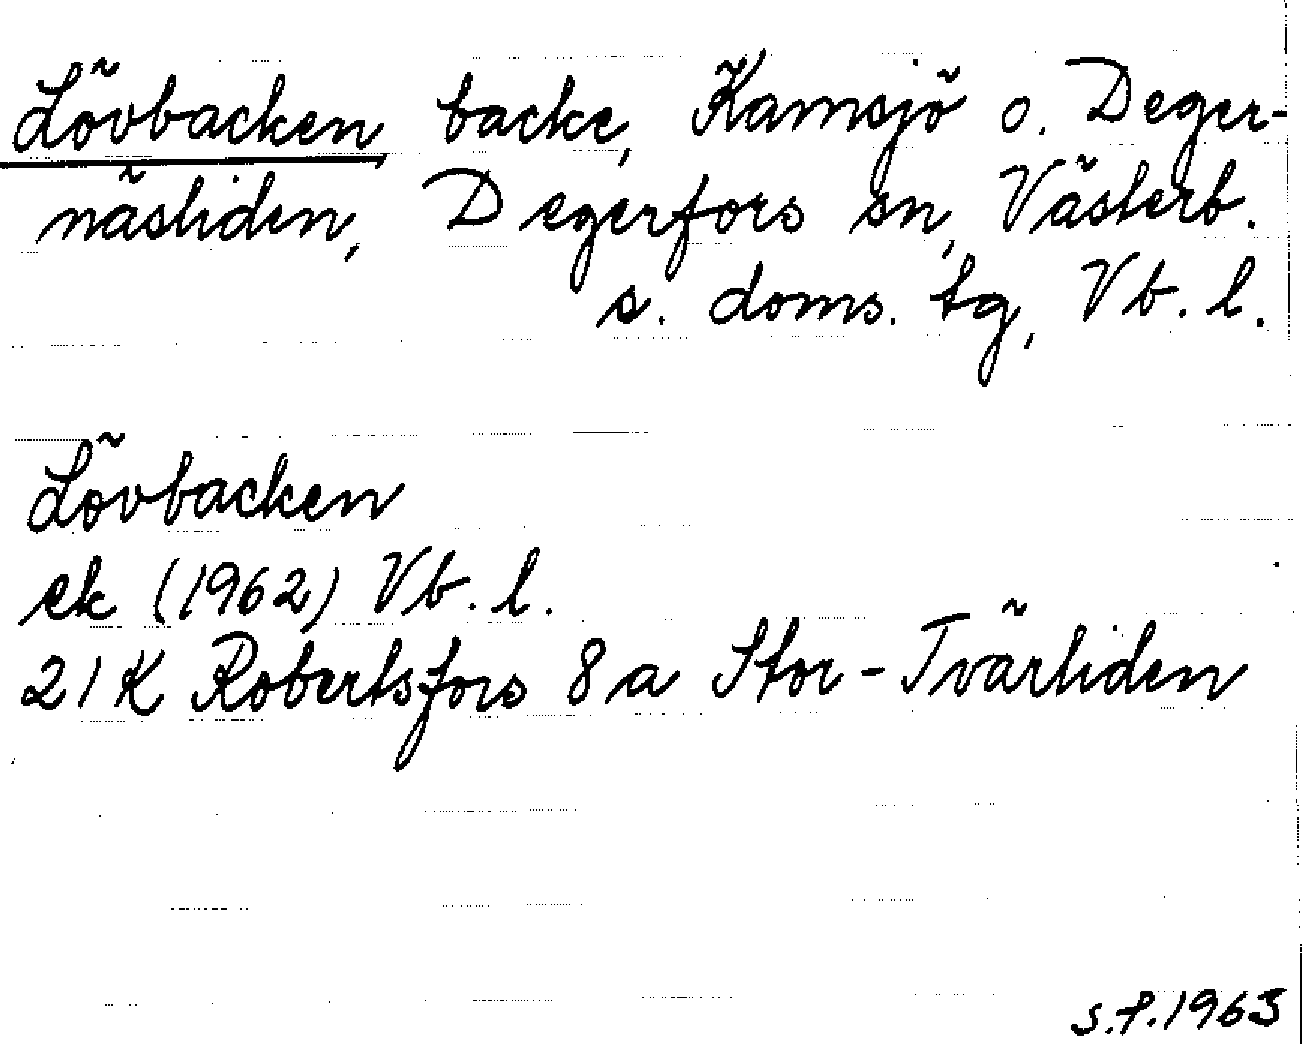 Lövbacken, backe, Kamsjö o. Deger-
näsliden, Degerfors sn, Västerb.
s. doms. tg, Vb. l.
Lövbacken
ek (1962) Vb. l.
21K Robertsfors 8a Stor-Tvärliden
S.P. 1963